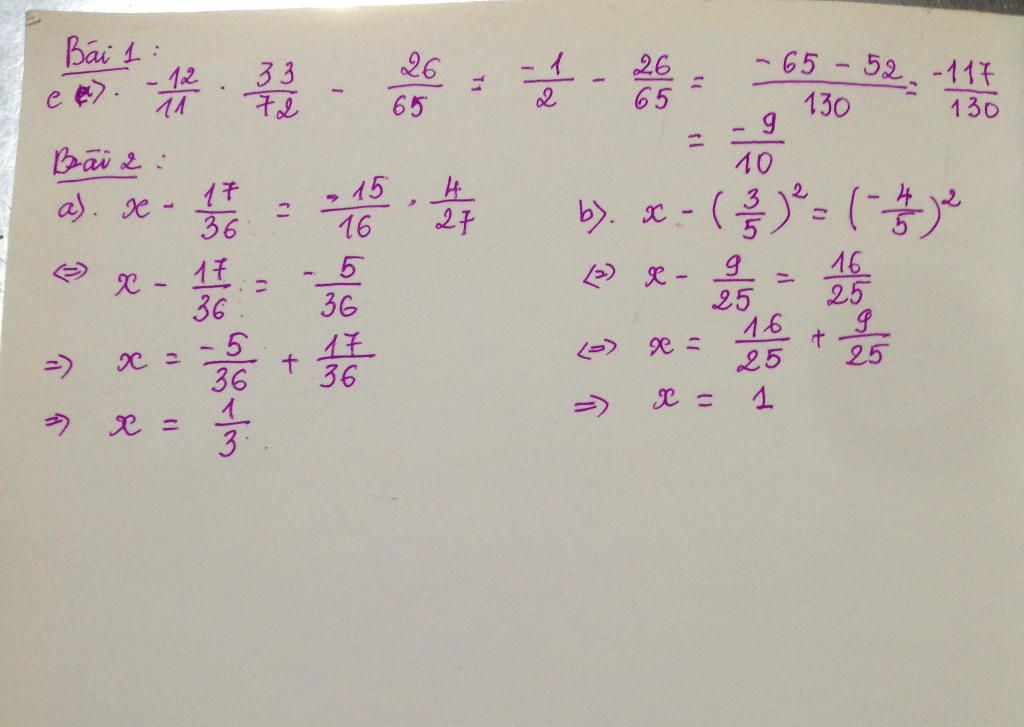 Bài 1 :
c a). -12/11 . 33/72 - 26/65 = -1/2 - 26/65 = -65 - 52/130 = -117/130
= -9/10
Bài 2 :
a). x - 17/36 = -15/16 . 4/27
⇔ x - 17/36 = -5/36
⇒ x = -5/36 + 17/36
⇒ x = 1/3
b). x - (3/5)² = (-4/5)²
⇔ x - 9/25 = 16/25
⇔ x = 16/25 + 9/25
⇒ x = 1